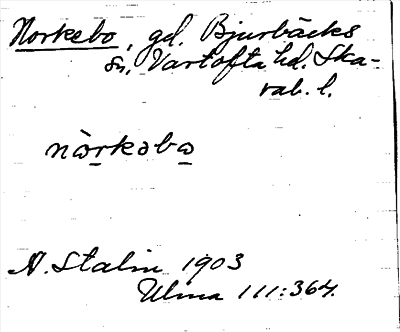 Norkebo, gd. Bjurbäcks
sn, Vartofta hd. Ska-
rab. l.
nòrkəbo
N. Stalin 1903
Ulma 111:364.